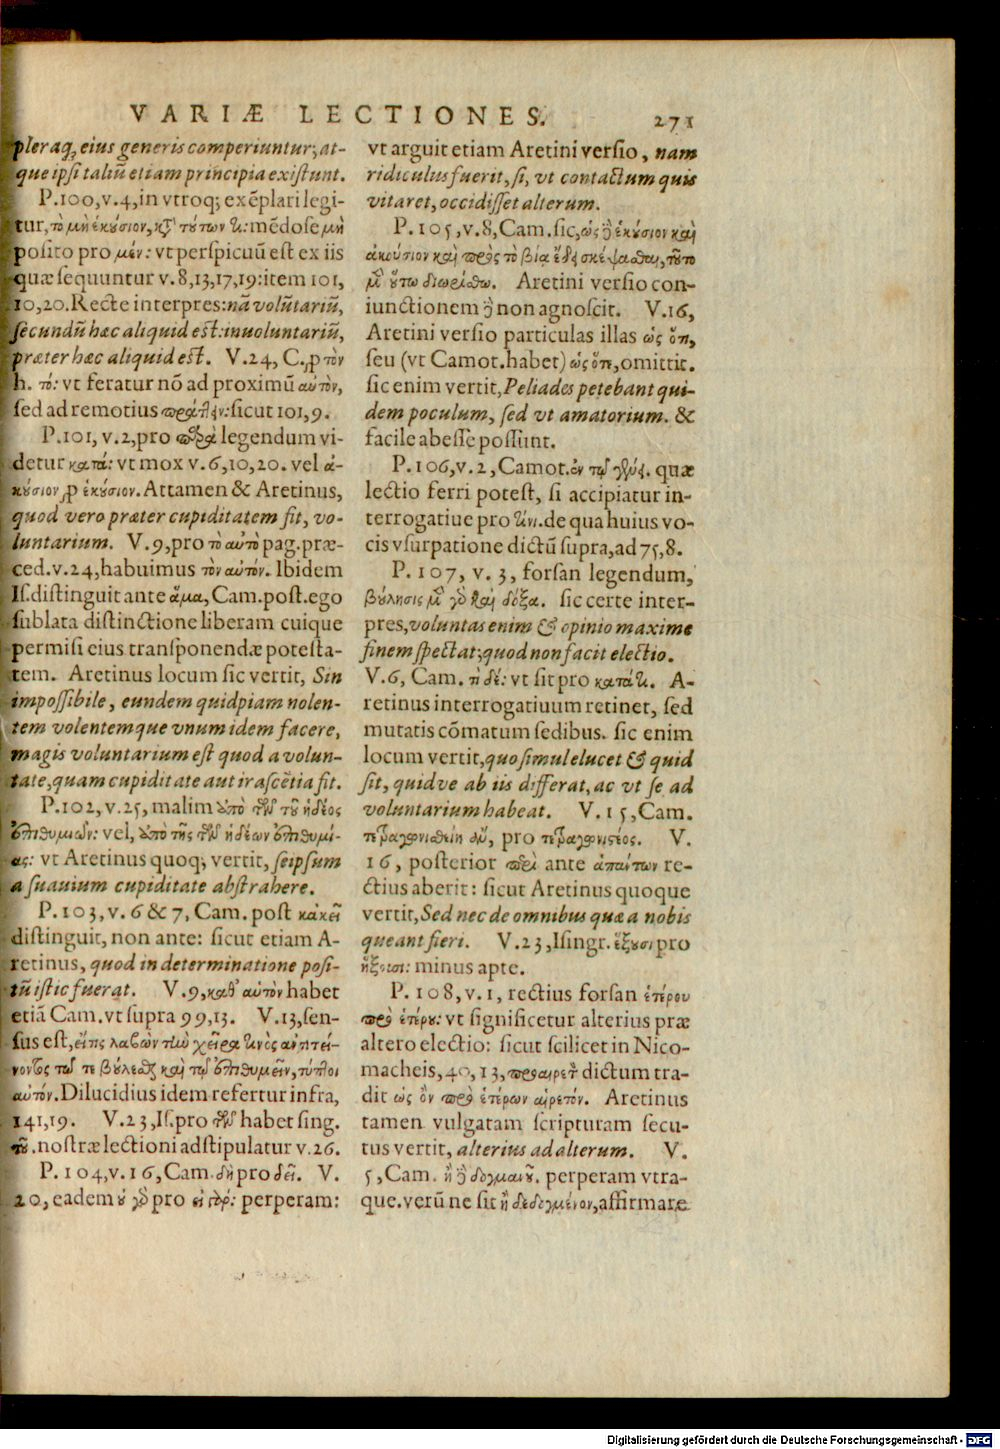 VARIÆ LECTIONES. 271
pleraq; eius generis comperiuntur; at-
que ipsi taliũ etiam principia existunt.
P.100, v.4, in vtroq; exẽplari legi-
tur, τὸ μὴ ἑκούσιον, κατὰ τούτων τι: mẽdose μὴ
posito pro μέν: vt perspicuũ est ex iis
quæ sequuntur v.8,13,17,19: item 101,
10,20. Recte interpres: nã volũtariũ,
secundũ hæc aliquid est: inuoluntariũ,
præter hæc aliquid est. V.24, C. p τὸν
h. τό: vt feratur nõ ad proximũ αὐτὸν,
sed ad remotius πράττειν: sicut 101,9.
P.101, v.2, pro παρὰ legendum vi-
detur κατά: vt mox v.6,10,20. vel ἀ-
κούσιον p ἑκούσιον. Attamen & Aretinus,
quod vero præter cupiditatem fit, vo-
luntarium. V.9, pro τὸ αὐτὸ pag. præ-
ced. v.24, habuimus τὸν αὐτόν. Ibidem
Is. distinguit ante ἅμα, Cam. post. ego
sublata distinctione liberam cuique
permisi eius transponendæ potesta-
tem. Aretinus locum sic vertit, Sin
impossibile, eundem quidpiam nolen-
tem volentemque vnum idem facere,
magis voluntarium est quod a volun-
tate, quam cupiditate aut irascẽtia fit.
P.102, v.25, malim ὑπὸ τῆς τοῦ ἡδέος
ἐπιθυμιῶν: vel, ὑπὸ τῆς τῶν ἡδέων ἐπιθυμί-
ας: vt Aretinus quoq; vertit, seipsum
a suauium cupiditate abstrahere.
P.103, v. 6 & 7, Cam. post κἀκεῖ
distinguit, non ante: sicut etiam A-
retinus, quod in determinatione posi-
tũ istic fuerat. V.9, καθ' αὑτὸν habet
etiã Cam. vt supra 99,13. V.13, sen-
sus est, εἴ τις λαβὼν τὴν χεῖρα τινὸς ἀντιτεί-
νοντος τῷ τε βούλεσθαι καὶ τῷ ἐπιθυμεῖν, τύπτοι
αὐτόν. Dilucidius idem refertur infra,
141,19. V.23, Is. pro τῶν habet sing.
τοῦ. nostræ lectioni adstipulatur v.26.
P. 104, v. 16, Cam. δὴ pro δεῖ. V.
20, eadem οὐ γὰρ pro εἰ γάρ: perperam:
vt arguit etiam Aretini versio, nam
ridiculus fuerit, si, vt contactum quis
vitaret, occidisset alterum.
P. 105, v.8, Cam. sic, ὡς δὲ ἑκούσιον καὶ
ἀκούσιον καὶ πρὸς τὸ βίᾳ ἔδει σκέψασθαι, τοῦτο
μὲν οὕτω διωρίσθω. Aretini versio con-
iunctionem δὲ non agnoscit. V.16,
Aretini versio particulas illas ὡς ὅτι,
seu (vt Camot. habet) ὡς ὅτι, omittit.
sic enim vertit, Peliades petebant qui-
dem poculum, sed vt amatorium. &
facile abesse possunt.
P. 106, v.2, Camot. ἐν τῷ γένει. quæ
lectio ferri potest, si accipiatur in-
terrogatiue pro τίνι. de qua huius vo-
cis vsurpatione dictũ supra, ad 75,8.
P. 107, v. 3, forsan legendum,
βούλησις μὲν γὰρ καὶ δόξα. sic certe inter-
pres, voluntas enim & opinio maxime
finem spectat; quod non facit electio.
V.6, Cam. τὶ δέ: vt sit pro κατά τι. A-
retinus interrogatiuum retinet, sed
mutatis cõmatum sedibus. sic enim
locum vertit, quo simul elucet & quid
sit, quidve ab iis differat, ac vt se ad
voluntarium habeat. V.15, Cam.
τετραγωνισθείη ἂν, pro τετραγωνιστέος. V.
16, posterior περὶ ante ἁπάντων re-
ctius aberit: sicut Aretinus quoque
vertit, Sed nec de omnibus quæ a nobis
queant fieri. V.23, Isingr. ἕξουσι pro
ἥξουσι: minus apte.
P. 108, v.1, rectius forsan ἑτέρου
πρὸ ἑτέρου: vt significetur alterius præ
altero electio: sicut scilicet in Nico-
macheis, 40, 13, προαιρετὸν dictum tra-
dit ὡς ὂν πρὸ ἑτέρων αἱρετόν. Aretinus
tamen vulgatam scripturam secu-
tus vertit, alterius ad alterum. V.
5, Cam. perperam vtra-
que. verũ ne sit ἢ δεδεγμένον, affirmare
Digitalisierung gefördert durch die Deutsche Forschungsgemeinschaft - DFG